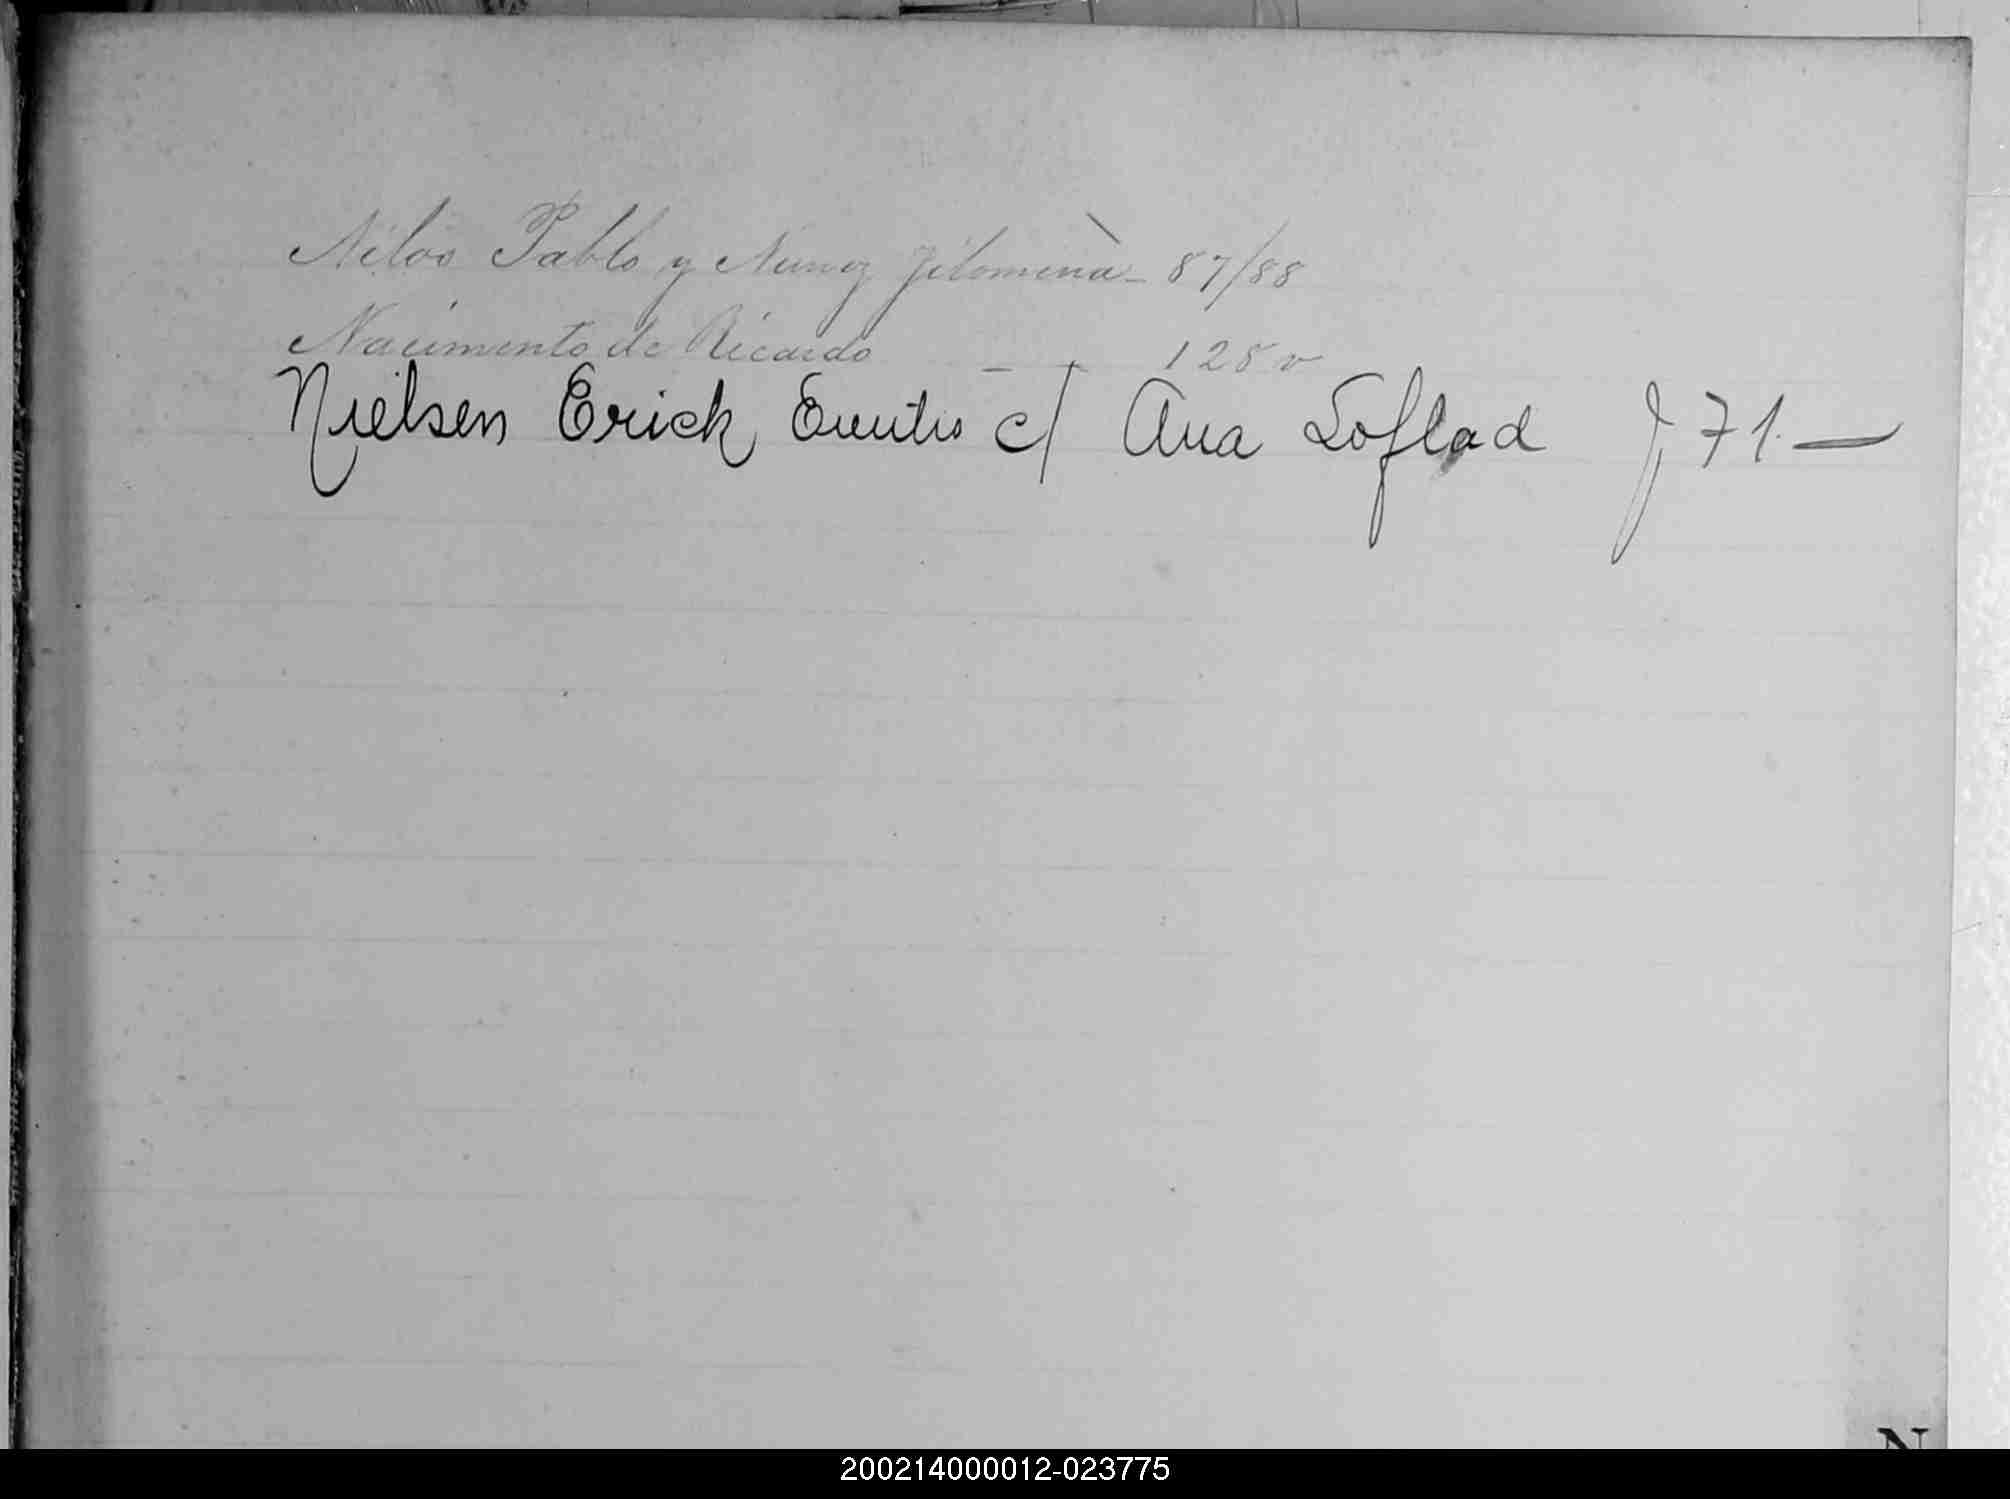 Nilos Pablo y Nuñez Filomena - 87/88
Nacimento de Ricardo - - 128 v
Nielsen Erick c/ Ana Loflad f 71. —
N
200214000012-023775